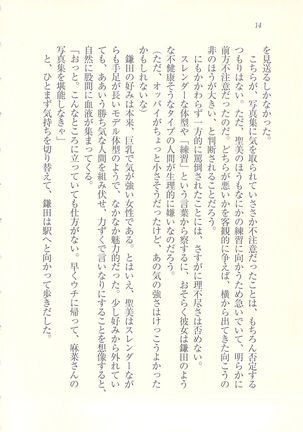 14
を見送るしかなかった。
　こちらが、写真集に気を取られていささか不注意だったことは、もちろん否定する
つもりはない。ただ、聖美のほうもなにかの練習に向かうため急いでいて、明らかに
前方不注意だったのだ。どちらが悪いかを客観的に争えば、横から出てきた向こうの
非のほうが大きい、と判断されることだろう。
　にもかかわらず一方的に罵倒されたことには、さすがに理不尽さは否めない。
　スレンダーな体型や「練習」という言葉から察するに、おそらく彼女は鎌田のよう
な不健康そうなタイプの人間が生理的に嫌いなのだろう。
（ただ、オッパイがちょっと小さそうだったけど、あの気の強さはけっこうよかった
かもしれないな）
　鎌田の好みは本来、巨乳で気が強い女性である。とはいえ、聖美はスレンダーなが
らも手足が長いモデル体型のようで、なかなか魅力的だった。少し好みから外れてい
ても、ああいう勝ち気な人間を組み伏せ、力ずくで言いなりにすることを想像すると、
自然に股間に血液が集まってくる。
「おっと。こんなところに立っていても仕方がない。早くウチに帰って、麻菜さんの
写真集を堪能しなきゃ」
　と、ひとまず気持ちを切り替えて、鎌田は駅へと向かって歩きだした。